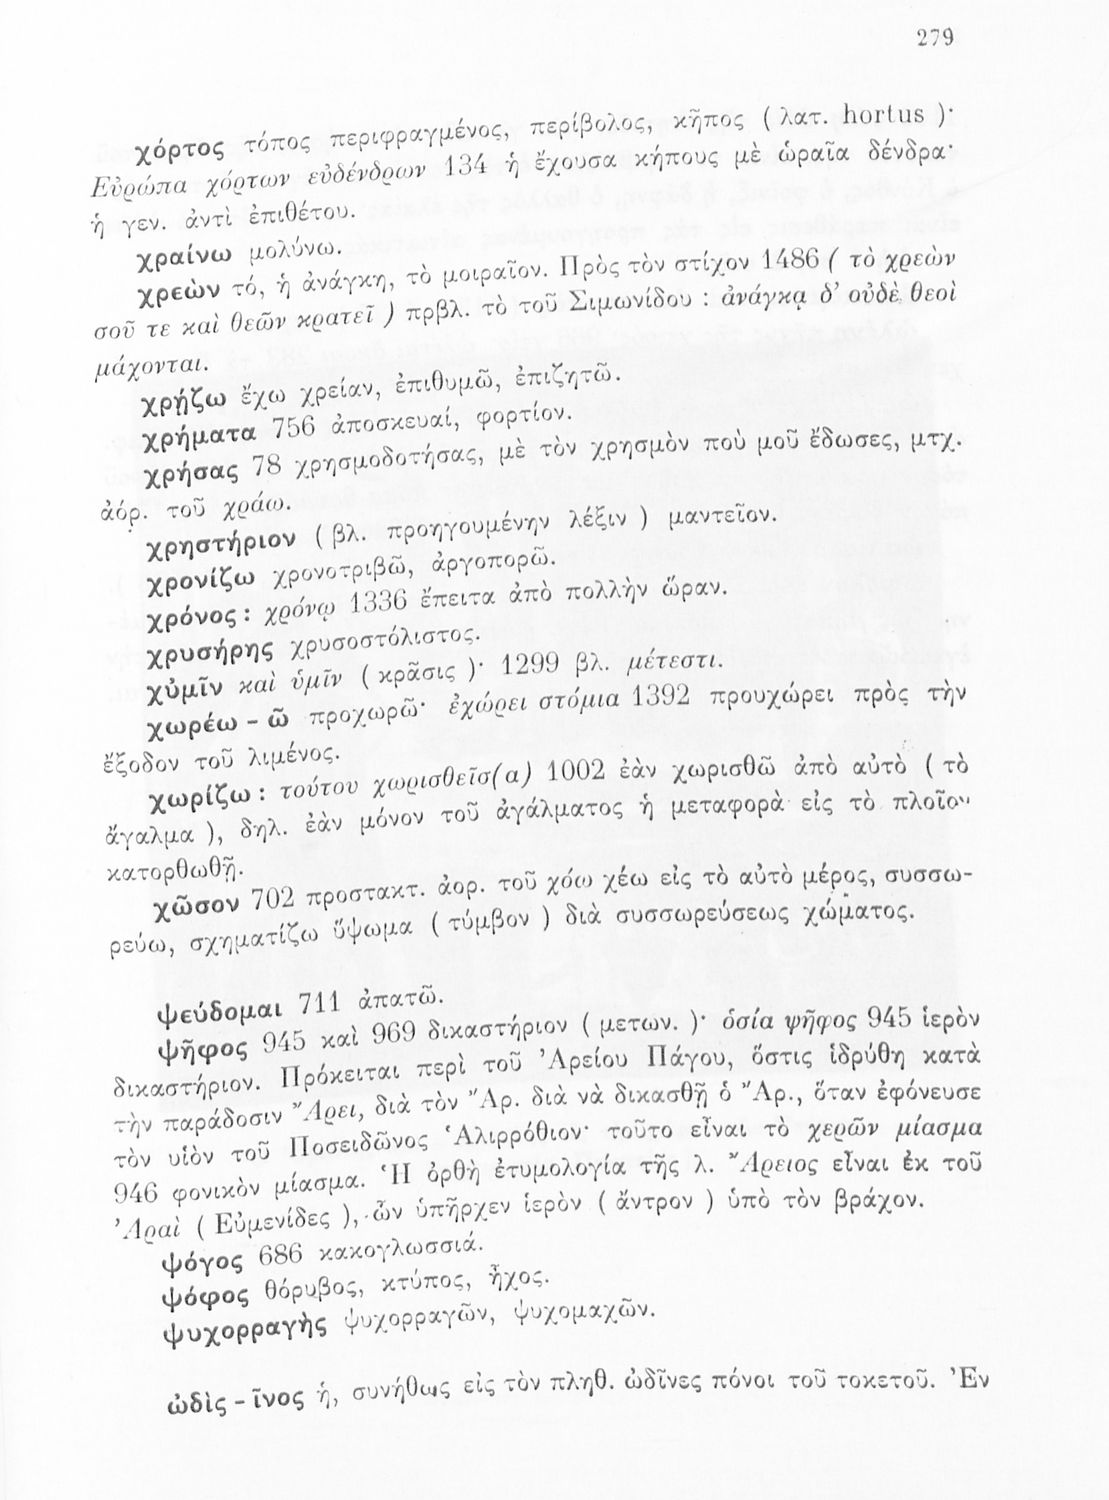 279
χόρτος τόπος περιφραγμένος, περίβολος, κῆπος ( λατ. hortus )·
Εὐρώπα χόρτων εὐδένδρων 134 ἡ ἔχουσα κήπους μὲ ὡραῖα δένδρα·
ἡ γεν. ἀντὶ ἐπιθέτου.
χραίνω μολύνω.
χρεὼν τό, ἡ ἀνάγκη, τὸ μοιραῖον. Πρὸς τὸν στίχον 1486 ( τὸ χρεὼν
σοῦ τε καὶ θεῶν κρατεῖ ) πρβλ. τὸ τοῦ Σιμωνίδου : ἀνάγκᾳ δ’ οὐδὲ θεοὶ
μάχονται.
χρῄζω ἔχω χρείαν, ἐπιθυμῶ, ἐπιζητῶ.
χρήματα 756 ἀποσκευαί, φορτίον.
χρήσας 78 χρησμοδοτήσας, μὲ τὸν χρησμὸν ποὺ μοῦ ἔδωσες, μτχ.
ἀόρ. τοῦ χράω.
χρηστήριον ( βλ. προηγουμένην λέξιν ) μαντεῖον.
χρονίζω χρονοτριβῶ, ἀργοπορῶ.
χρόνος : χρόνῳ 1336 ἔπειτα ἀπὸ πολλὴν ὥραν.
χρυσήρης χρυσοστόλιστος.
χὐμῖν καὶ ὑμῖν ( κρᾶσις )· 1299 βλ. μέτεστι.
χωρέω - ῶ προχωρῶ· ἐχώρει στόμια 1392 προυχώρει πρὸς τὴν
ἔξοδον τοῦ λιμένος.
χωρίζω : τούτου χωρισθεῖσ(α) 1002 ἐὰν χωρισθῶ ἀπὸ αὐτὸ ( τὸ
ἄγαλμα ), δηλ. ἐὰν μόνον τοῦ ἀγάλματος ἡ μεταφορὰ εἰς τὸ πλοῖον
κατορθωθῇ.
χῶσον 702 προστακτ. ἀορ. τοῦ χόω χέω εἰς τὸ αὐτὸ μέρος, συσσω-
ρεύω, σχηματίζω ὕψωμα ( τύμβον ) διὰ συσσωρεύσεως χώματος.
ψεύδομαι 711 ἀπατῶ.
ψῆφος 945 καὶ 969 δικαστήριον ( μετων. )· ὁσία ψῆφος 945 ἱερὸν
δικαστήριον. Πρόκειται περὶ τοῦ Ἀρείου Πάγου, ὅστις ἱδρύθη κατὰ
τὴν παράδοσιν Ἄρει, διὰ τὸν Ἄρ. διὰ νὰ δικασθῇ ὁ Ἄρ., ὅταν ἐφόνευσε
τὸν υἱὸν τοῦ Ποσειδῶνος Ἁλιρρόθιον· τοῦτο εἶναι τὸ χερῶν μίασμα
946 φονικὸν μίασμα. Ἡ ὀρθὴ ἐτυμολογία τῆς λ. Ἄρειος εἶναι ἐκ τοῦ
Ἀραὶ ( Εὐμενίδες ), ὧν ὑπῆρχεν ἱερὸν ( ἄντρον ) ὑπὸ τὸν βράχον.
ψόγος 686 κακογλωσσιά.
ψόφος θόρυβος, κτύπος, ἦχος.
ψυχορραγὴς ψυχορραγῶν, ψυχομαχῶν.
ὠδὶς - ῖνος ἡ, συνήθως εἰς τὸν πληθ. ὠδῖνες πόνοι τοῦ τοκετοῦ. Ἐν